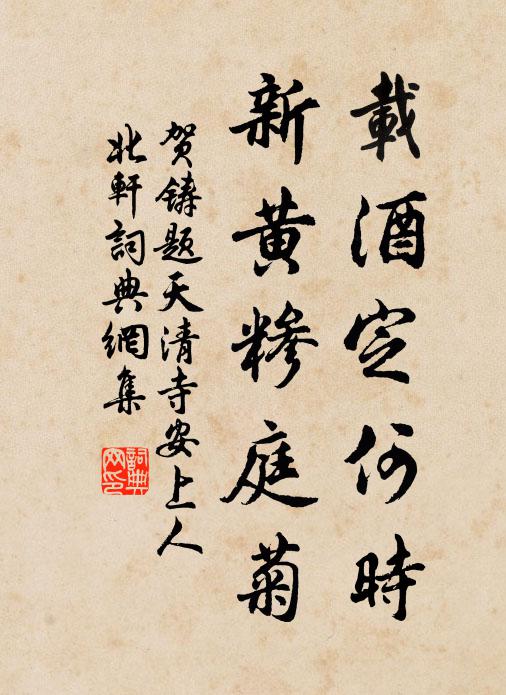 載酒定何時
新黃糝庭菊
贺鑄題天清寺安上人
北軒詞典網集
詞典
网印